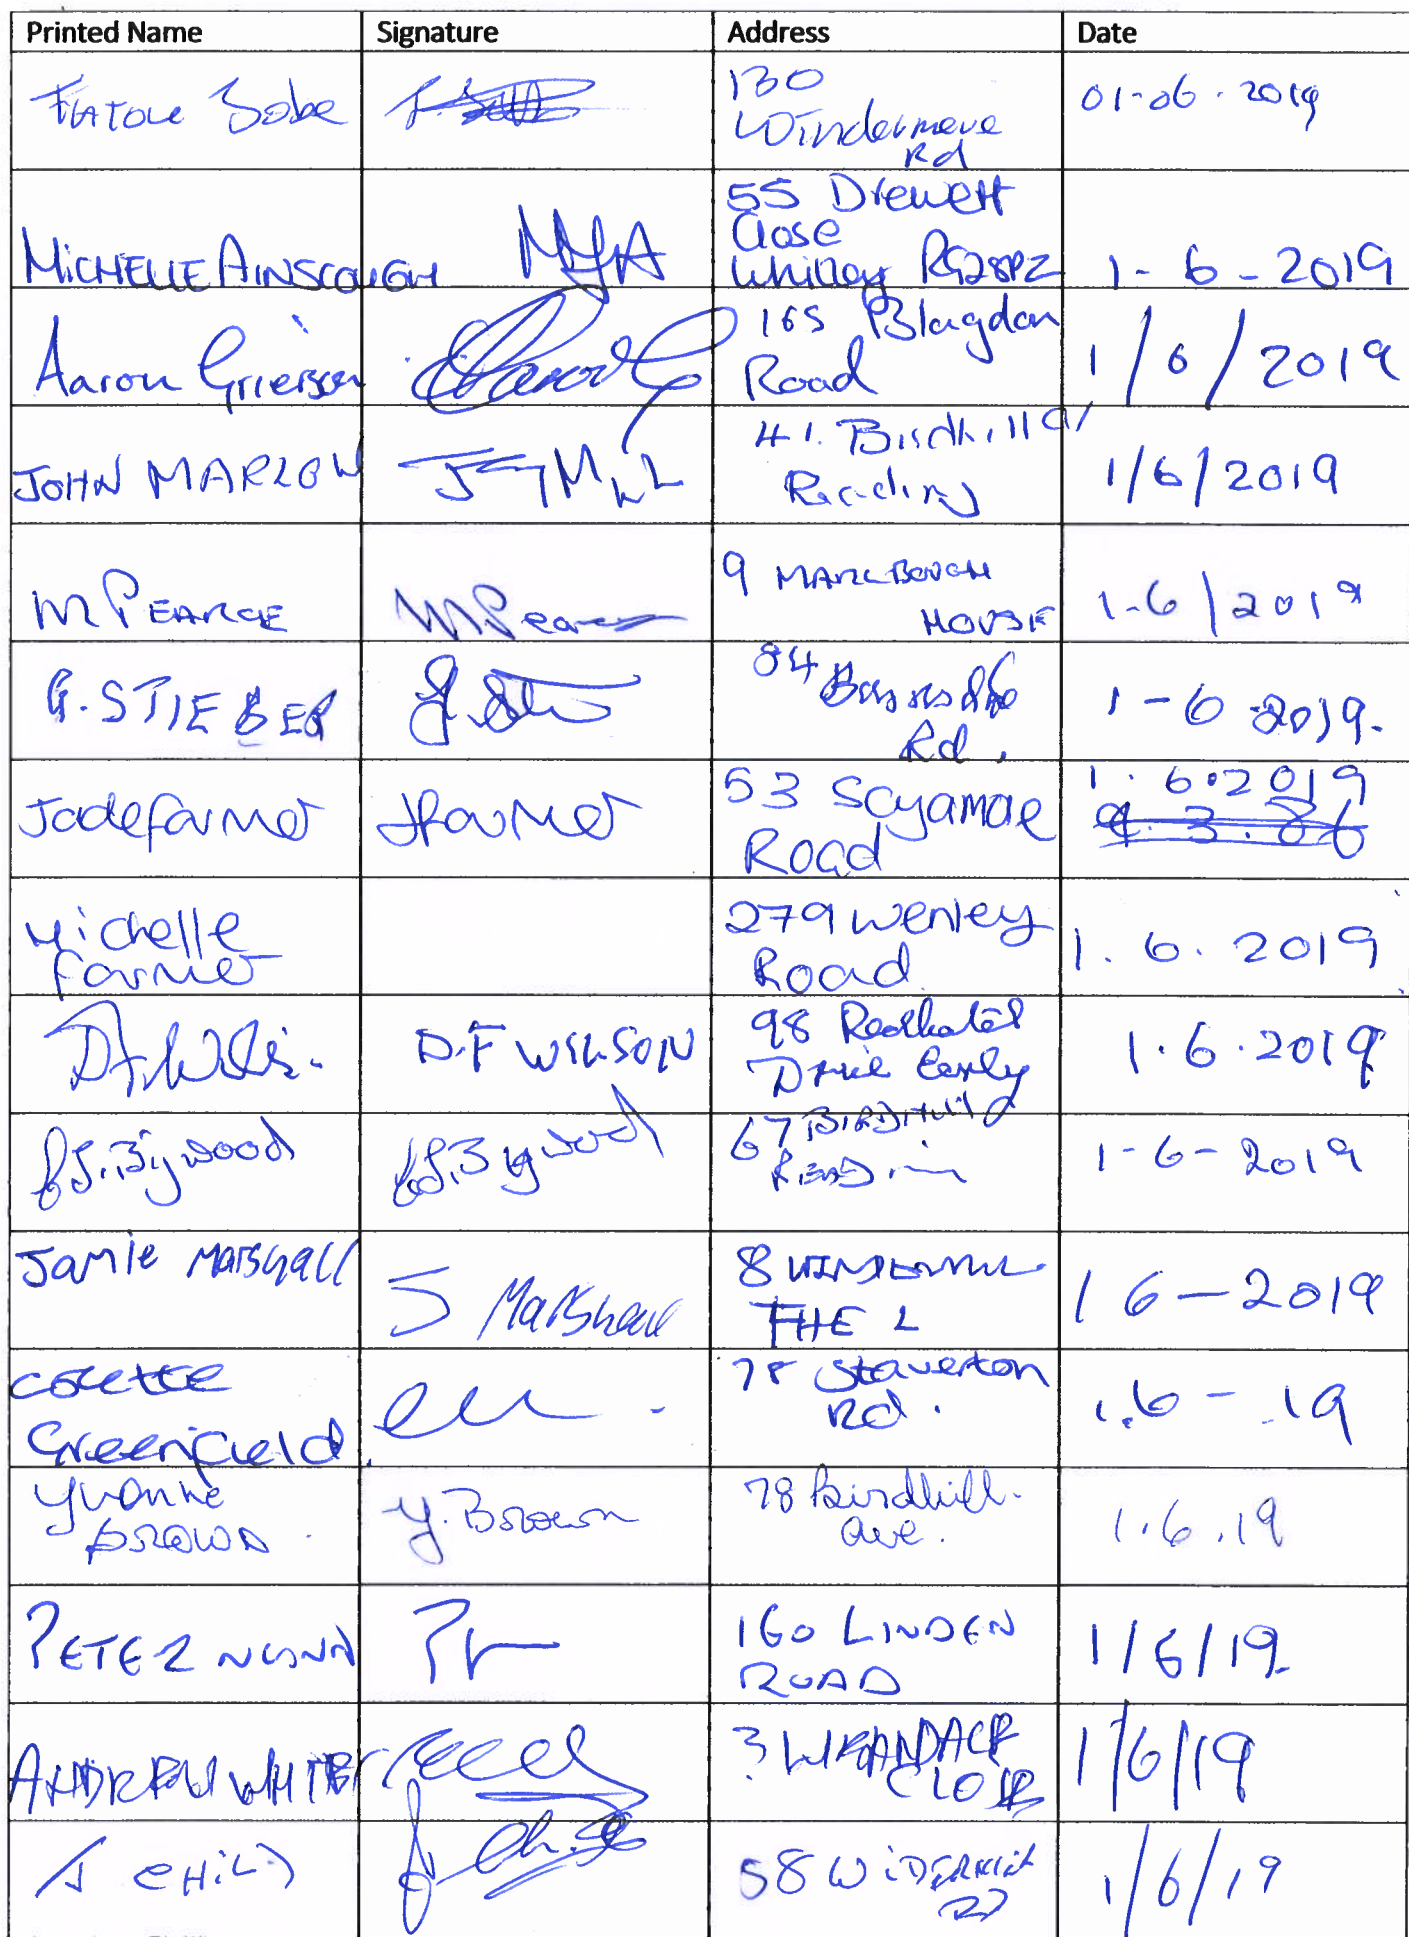 Printed Name Signature Address Date
Fatou Sobe 130 Windermere Rd 01-06-2019
MICHELLE AINSCOUGH MJA 55 Drewett Close Whitley RG28PZ 1-6-2019
Aaron Grierson 165 Blagdon Road 1/6/2019
JOHN MARLOW 41. Birdhill Reading 1/6/2019
M PEARCE M Pearce 9 MARLBOUGH HOUSE 1-6/2019
G. STIEBER 84 Rd. 1-6-2019.
Jade farmer JFarmer 53 Road 1.6.2019
9.3.86
Michelle farmer 279 Road 1.6.2019
D.F WILSON 98 Drive Early 1.6.2019
J.Bigwood J.Bigwood 67 BIRDHILL 1-6-2019
Jamie Marshall J Marshall 8 1 6-2019
Colette Greenfield. 78 Staverton Rd. 1.6-19
Yvonne Brown. Y. Brown 78 Birdhill Ave. 1.6.19
PETER NUNN 160 LINDEN ROAD 1/6/19
ANDREW WHITE 3 CLOSE 1/6/19
J CHILD J. Child 58 RD 1/6/19